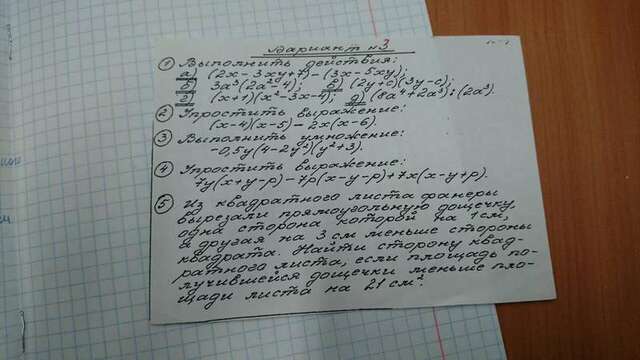 Вариант №3
① Выполнить действия:
а) (2x-3xy+7)-(3x-5xy);
б) 3a³(2a²-4); в) (2y+c)(3y-c);
г) (x+1)(x²-3x-4); д) (8a⁴+2a³):(2a³).
② Упростить выражение:
(x-4)(x-5)-2x(x-6).
③ Выполнить умножение:
-0,5y(4-2y²)(y²+3).
④ Упростить выражение:
7y(x+y-p)-7p(x-y-p)+7x(x-y+p).
⑤ Из квадратного листа фанеры
вырезали прямоугольную дощечку,
одна сторона которой на 1 см,
а другая на 3 см меньше стороны
квадрата. Найти сторону квад-
ратного листа, если площадь по-
лучившейся дощечки меньше пло-
щади листа на 21 см².